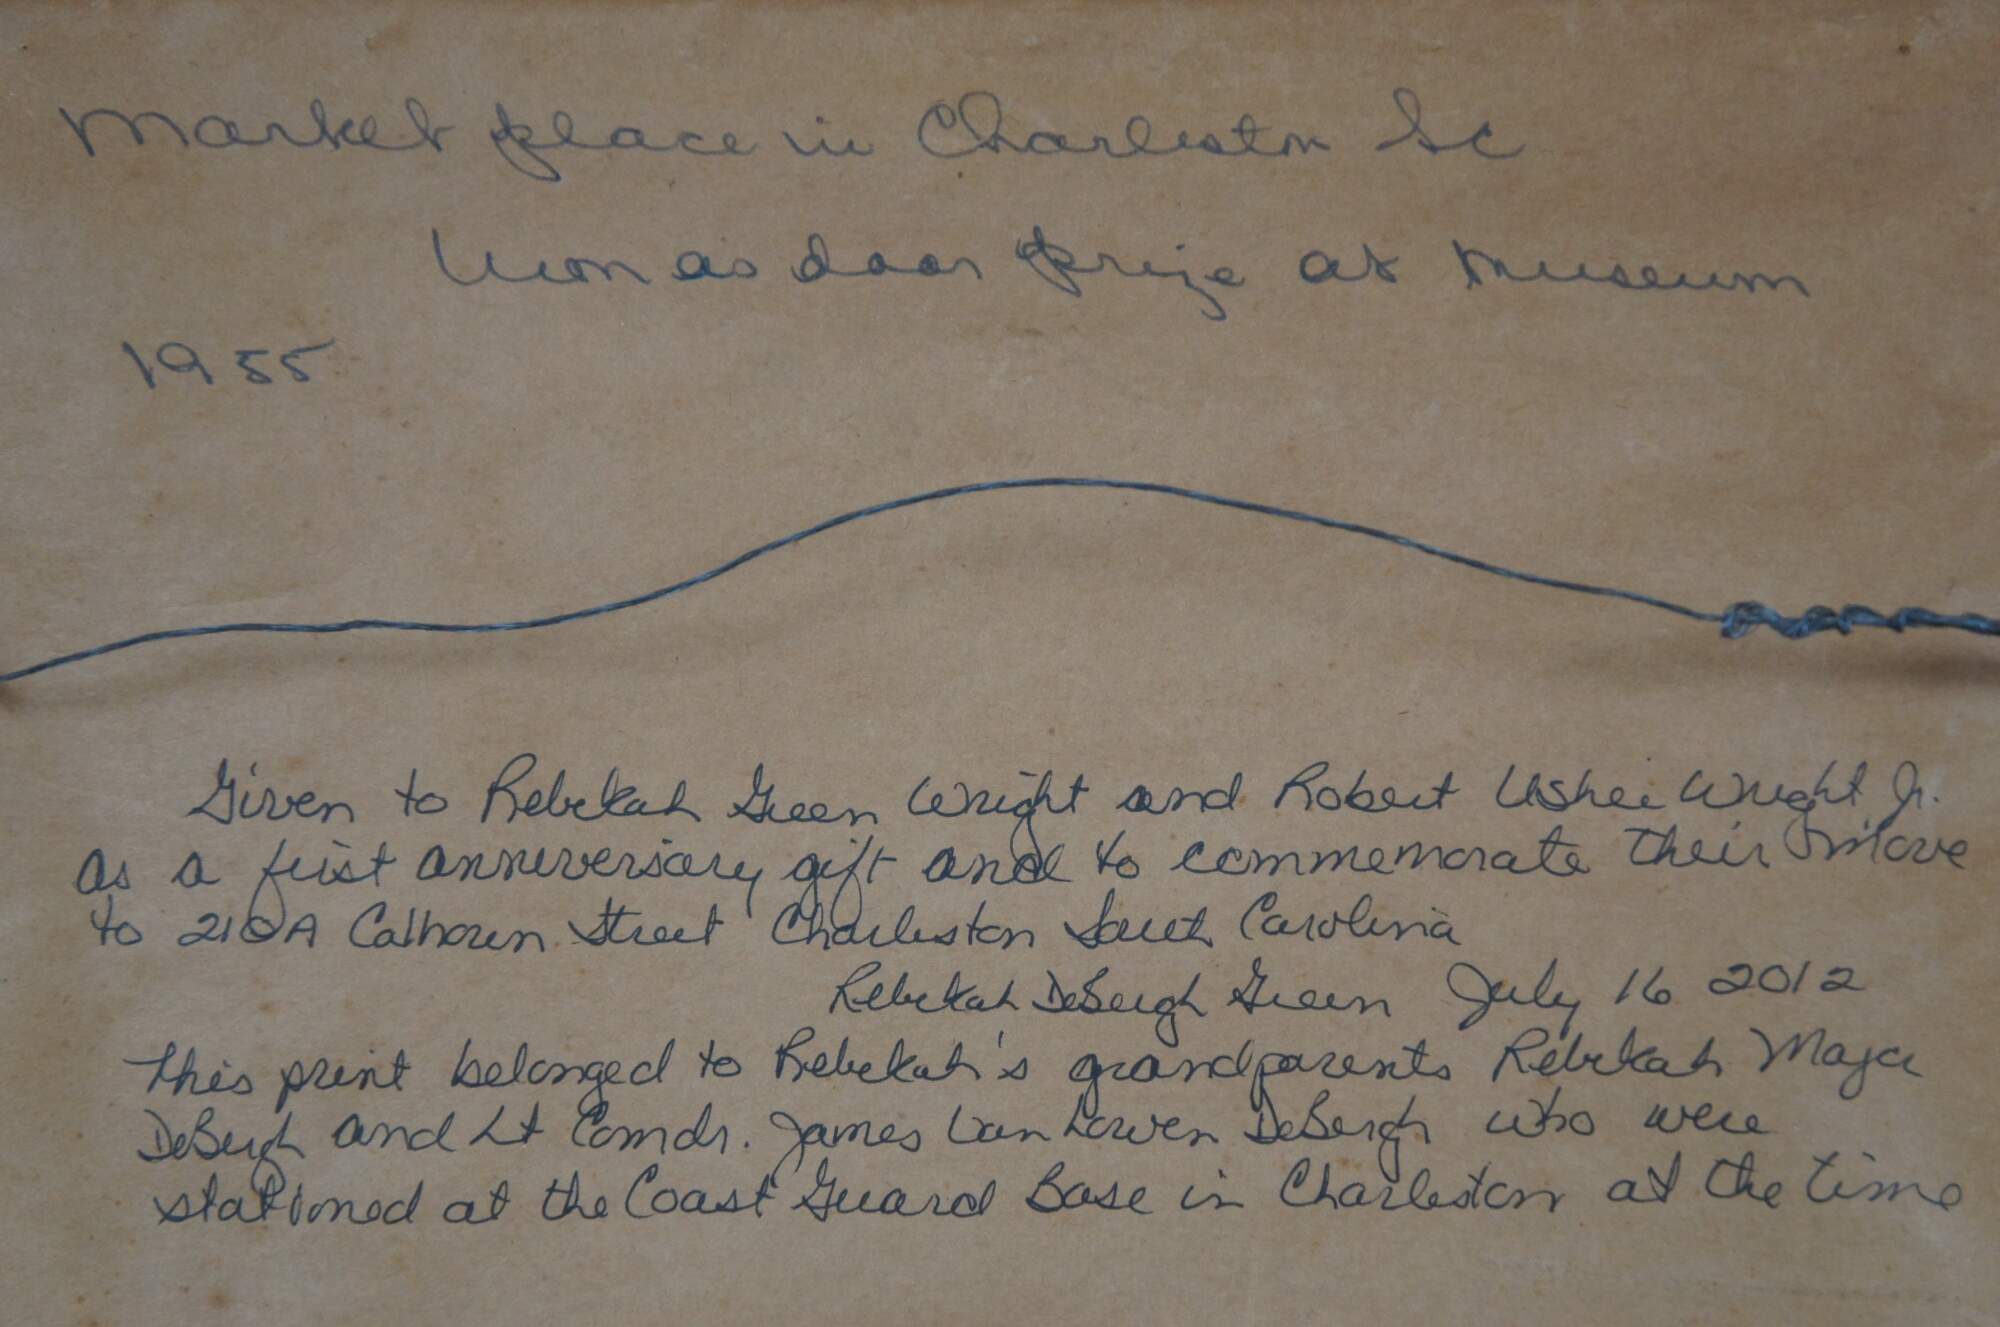 Market place in Charleston Sc
Won as door prize at museum
1955
Given to Rebekah Green Wright and Robert Usher Wright Jr.
as a first anniversary gift and to commemorate their move
to 210A Calhoun Street Charleston South Carolina
Rebekah DeBergh Green July 16 2012
This print belonged to Rebekah's grandparents Rebekah
DeBergh and Lt Comdr. James Van DeBergh who were
stationed at the Coast Guard Base in Charleston at the time